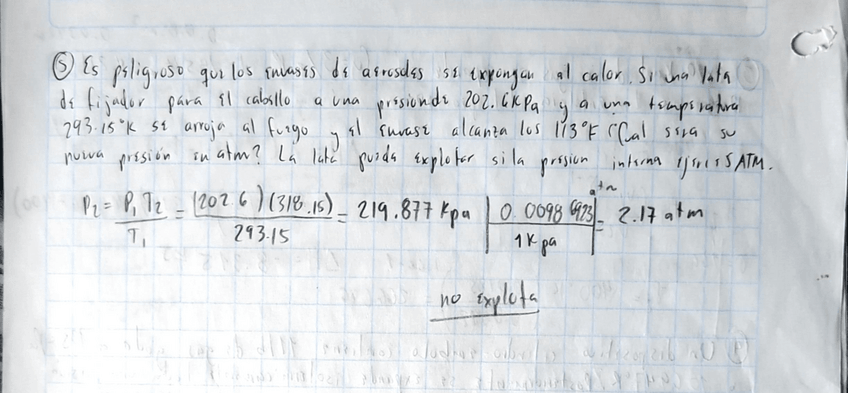 ⑤ Es peligroso que los envases de aerosoles se expongan al calor. Si una lata
de fijador para el cabello a una presionde 202.6KPa y a una temperatura
293.15°K se arroja al fuego y el envase alcanza los 113°F ¿Cual sera su
nueva presión en atm? La lata puede explotar si la presion interna ejerce 5 ATM.
P₂ = P₁ T₂ / T₁ = (202.6)(318.15) / 293.15 = 219.877 Kpa | 0.00986923 atm / 1K pa | = 2.17 atm
no explota